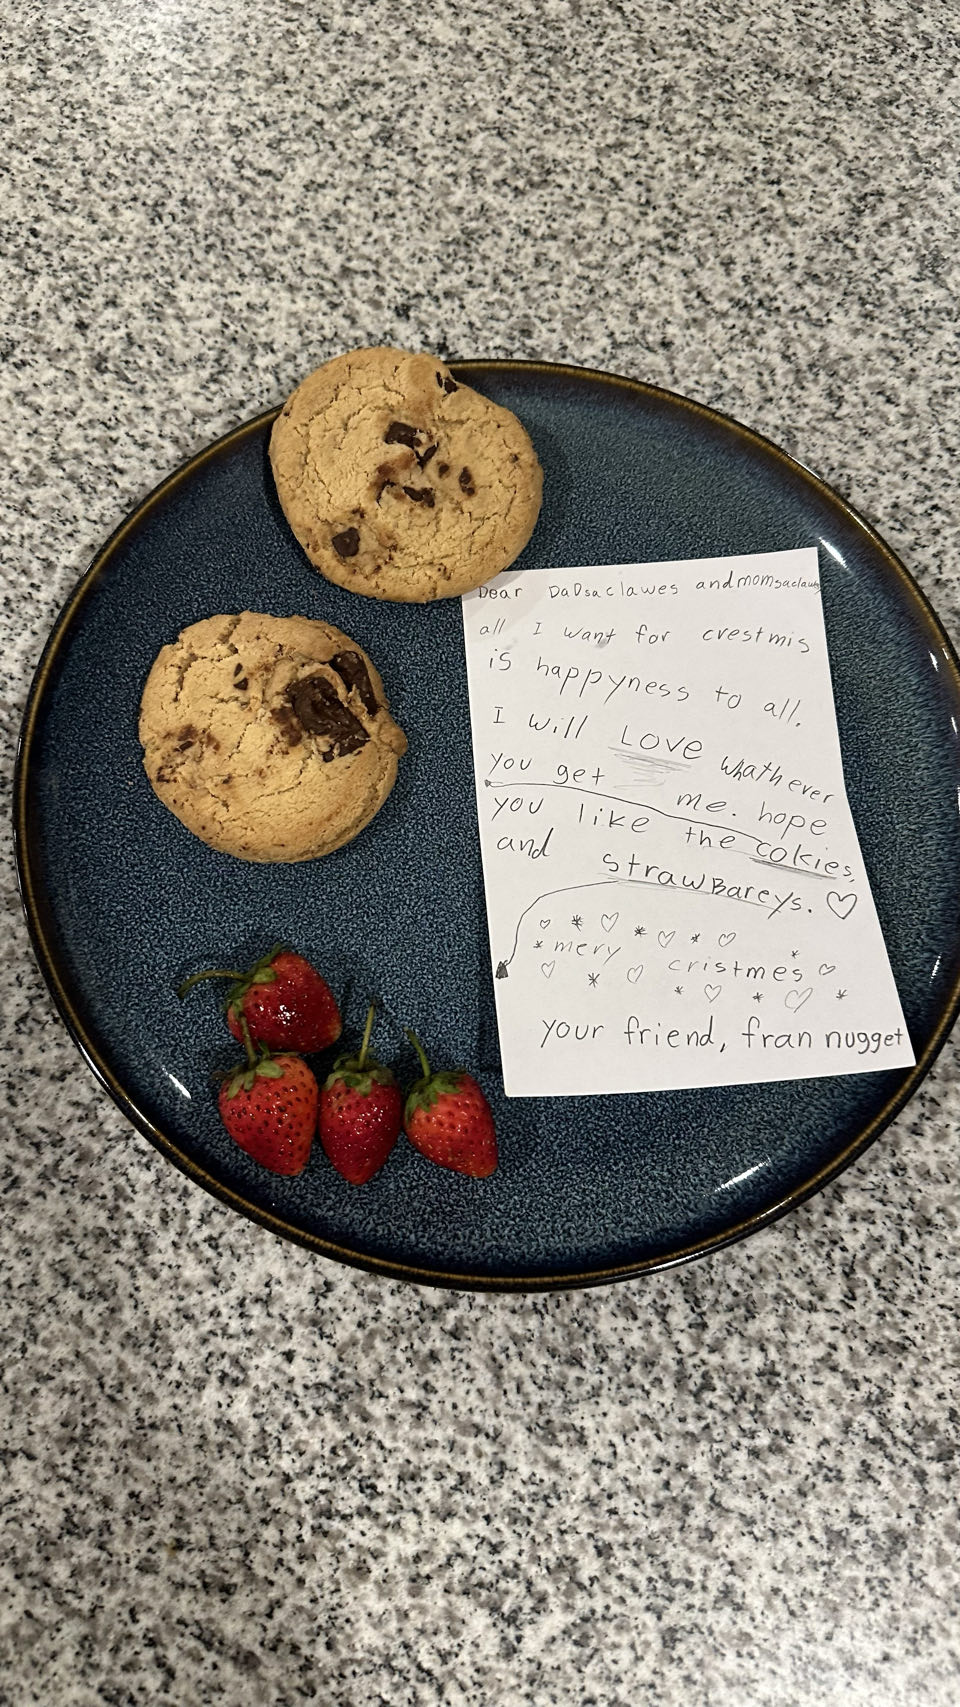 Dear DaDsaclawes and momsaclawes
all I want for crestmis
is happyness to all.
I will Love whathever
you get me. hope
you like the cokies,
and strawBareys. ♡
mery cristmes
your friend, fran nugget